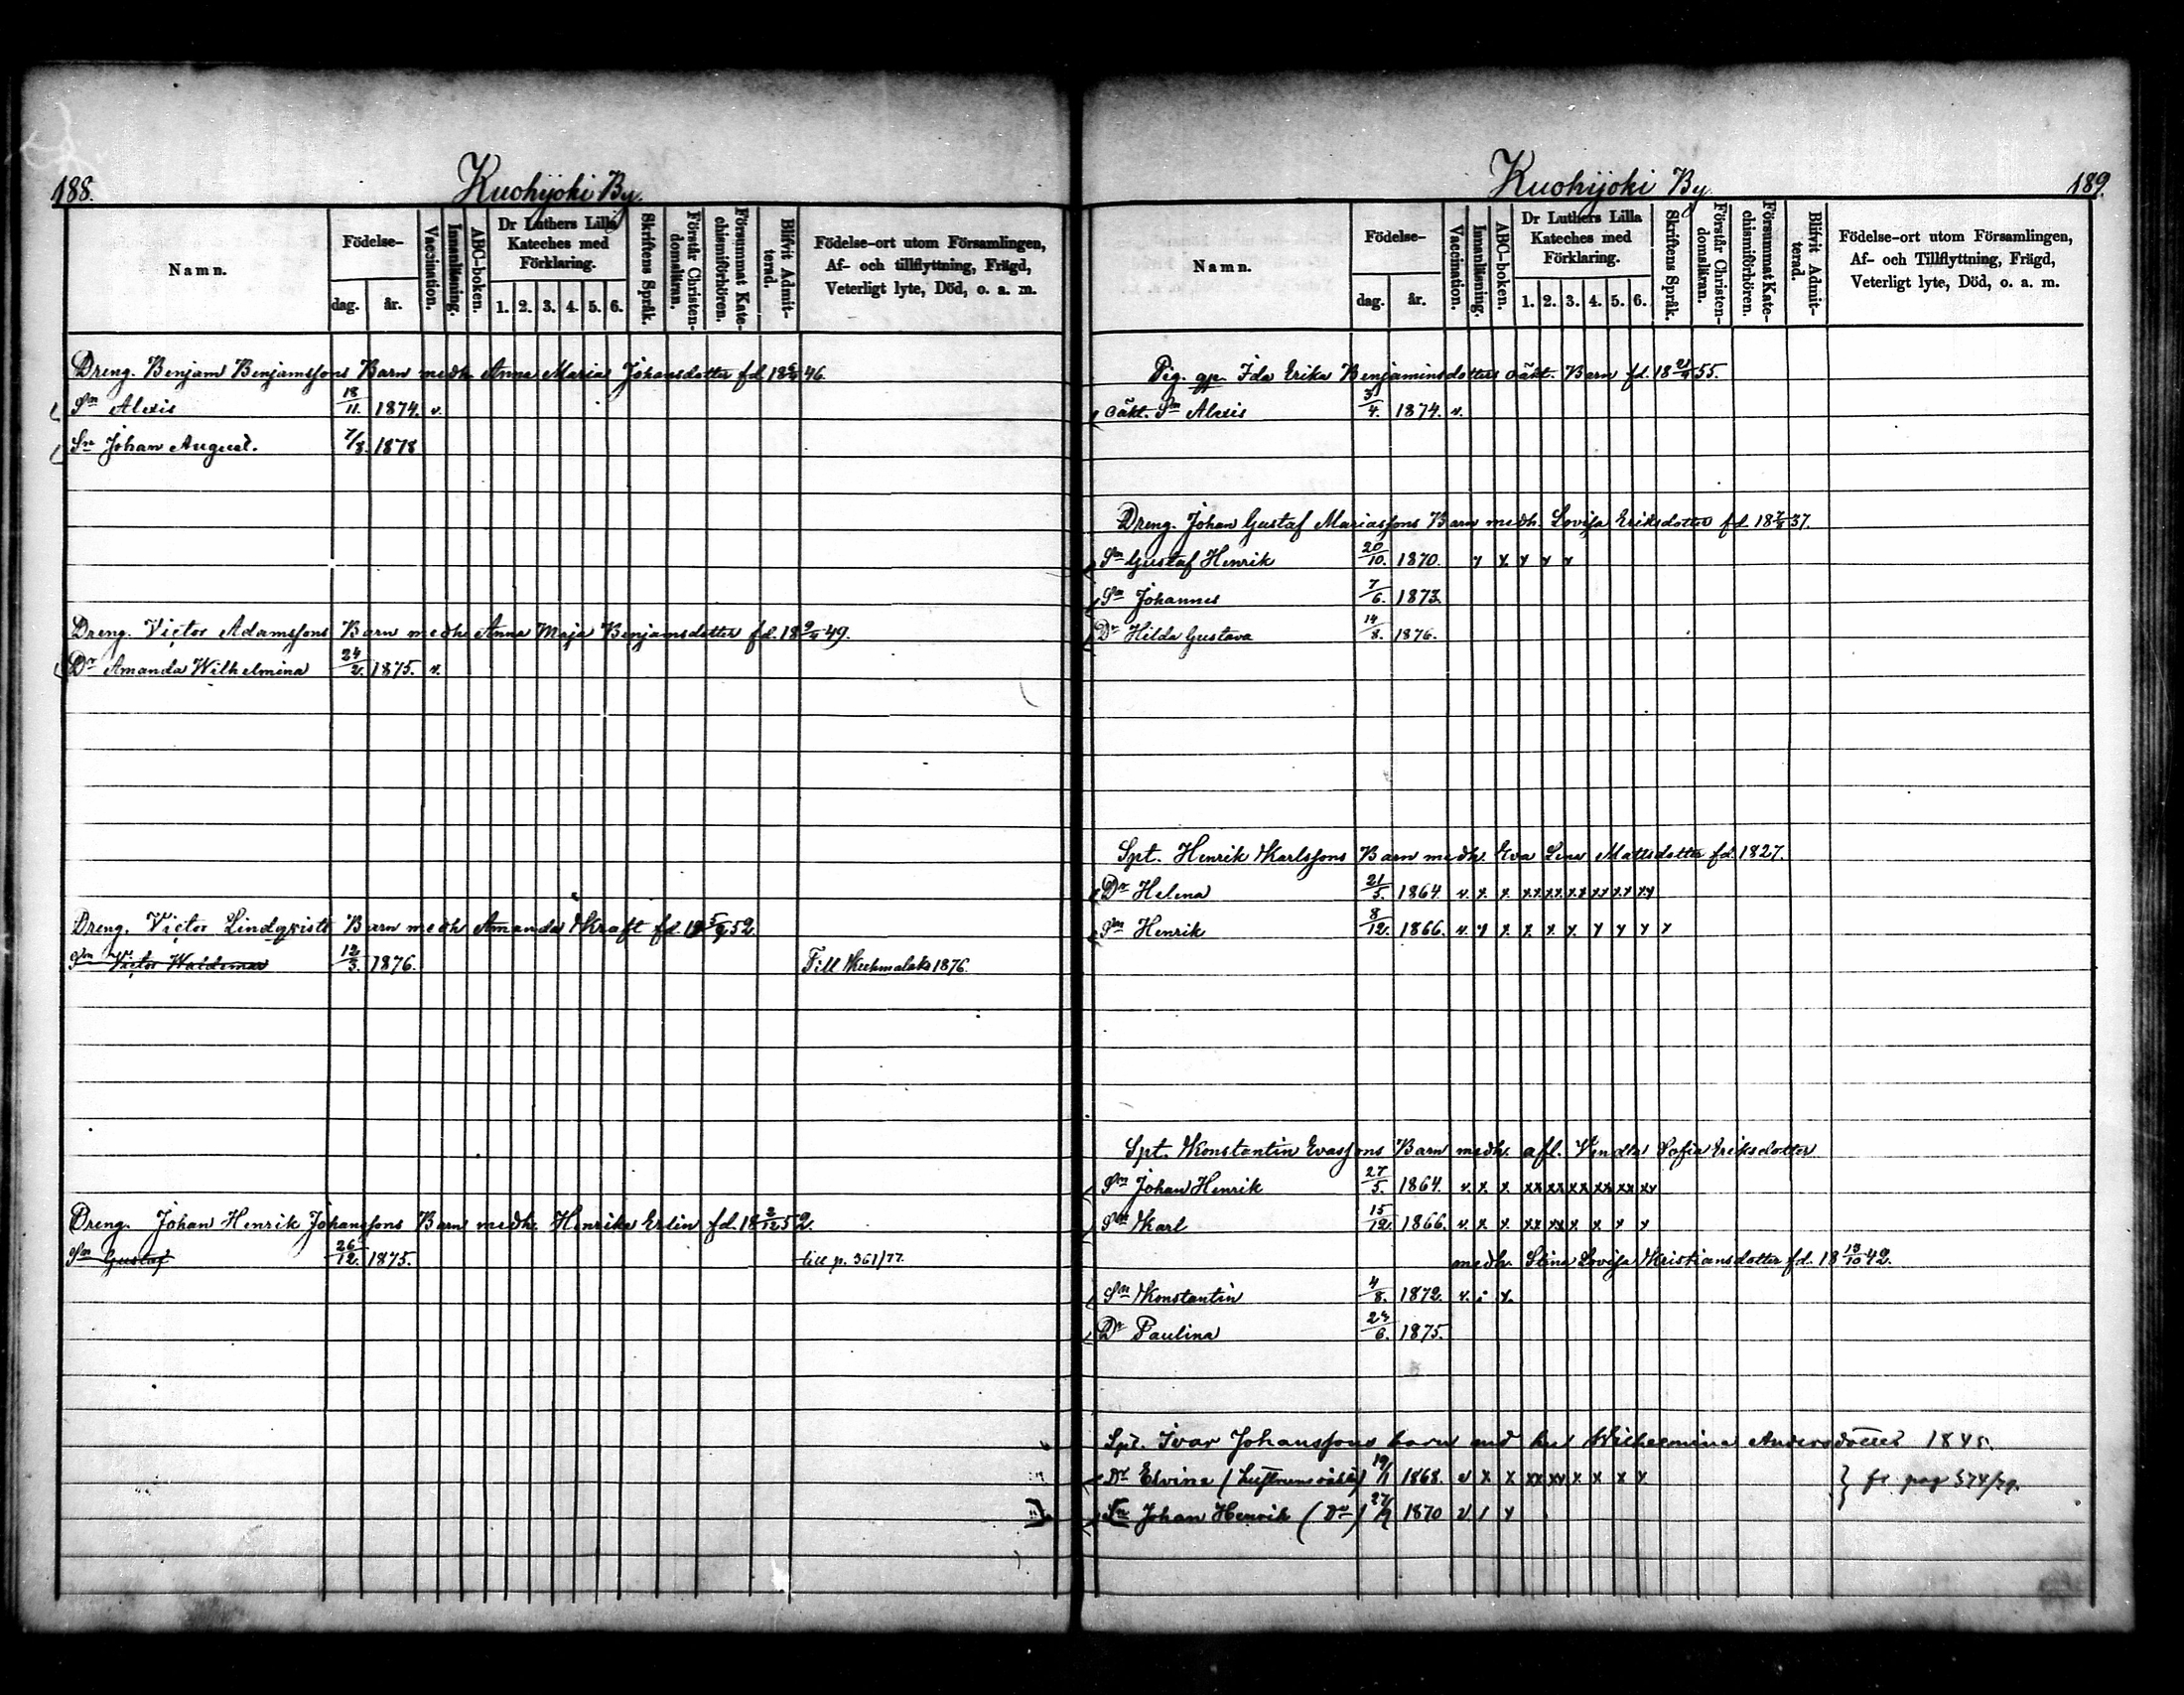 188.
Kuohijoki By
Namn.
Födelse-
dag.
år.
Vaccination.
Innanläsning.
ABC-boken.
Dr Luthers Lilla
Kateches med
Förklaring.
1. 2. 3. 4. 5. 6.
Skriftens Språk.
Förstår Christen-
domsläran.
Försummat Kate-
chismiförhören.
Blifvit Admit-
terad.
Födelse-ort utom Församlingen,
Af- och tillflyttning, Frägd,
Veterligt lyte, Död, o. a. m.
Dreng. Benjam Benjamsfons Barn medh. Anna Maria Johansdotter fd. 18 46.
Sn Alexis 18/11. 1874. v.
Sn Johan August. 7/8. 1878
Dreng. Victor Adamsfons Barn medh. Anna Maja Benjamsdotter fd. 18 49.
Dr Amanda Wilhelmina 24/2. 1875. v.
Dreng. Victor Lindqvists Barn medh. Amanda Kraft fd. 18 52.
Sn Victor Waldemar 12/3. 1876. Till Kuhmalaks 1876.
Dreng. Johan Henrik Johansfons Barn medh. Henrika Erlin fd. 18 2/12 52.
Sn Gustaf 26/12. 1875. till p. 361/77.
Kuohijoki By.
189.
Namn.
Födelse-
dag.
år.
Vaccination.
Innanläsning.
ABC-boken.
Dr Luthers Lilla
Kateches med
Förklaring.
1. 2. 3. 4. 5. 6.
Skriftens Språk.
Förstår Christen-
domsläran.
Försummat Kate-
chismiförhören.
Blifvit Admit-
terad.
Födelse-ort utom Församlingen,
Af- och Tillflyttning, Frägd,
Veterligt lyte, Död, o. a. m.
Pig. qp. Ida Erika Benjaminsdotters oäkt. Barn fd. 18 55.
oäkt. Sn Alexis 3/4. 1874. v.
Dreng. Johan Gustaf Mariasfons Barn medh. Lovisa Eriksdotter fd. 18 37.
Sn Gustaf Henrik 20/10. 1870. x x x x x
Sn Johannes 7/6. 1873.
Dr Hilda Gustava 14/8. 1876.
Spt. Henrik Karlsfons Barn medh. Eva Lena Mattsdotter fd. 1827.
Dr Helena 21/5. 1864 v. x x xx xx xx xx xx xx
Sn Henrik 8/12. 1866. v. x x x x x x x x x
Spt. Konstantin Evasfons Barn medh. afl. Vendla Sofia Eriksdotter
Sn Johan Henrik 27/5. 1864. v. x x xx xx xx xx xx xx
Sn Karl 15/12. 1866. v. x x xx xx x x x x
medh. Stina Lovisa Kristiansdotter fd. 18 13/10 42.
Sn Konstantin 4/8. 1872. v. i x.
Dr Paulina 24/6. 1875.
Spt. Ivar Johansfons barn med hu Wilhelmina Andersdotter 1845.
Dr Elvina 19/1 1868. v x x xx xx x x x x
Sn Johan Henrik (Do) 1870 v / x
} fr. pag 374/79.